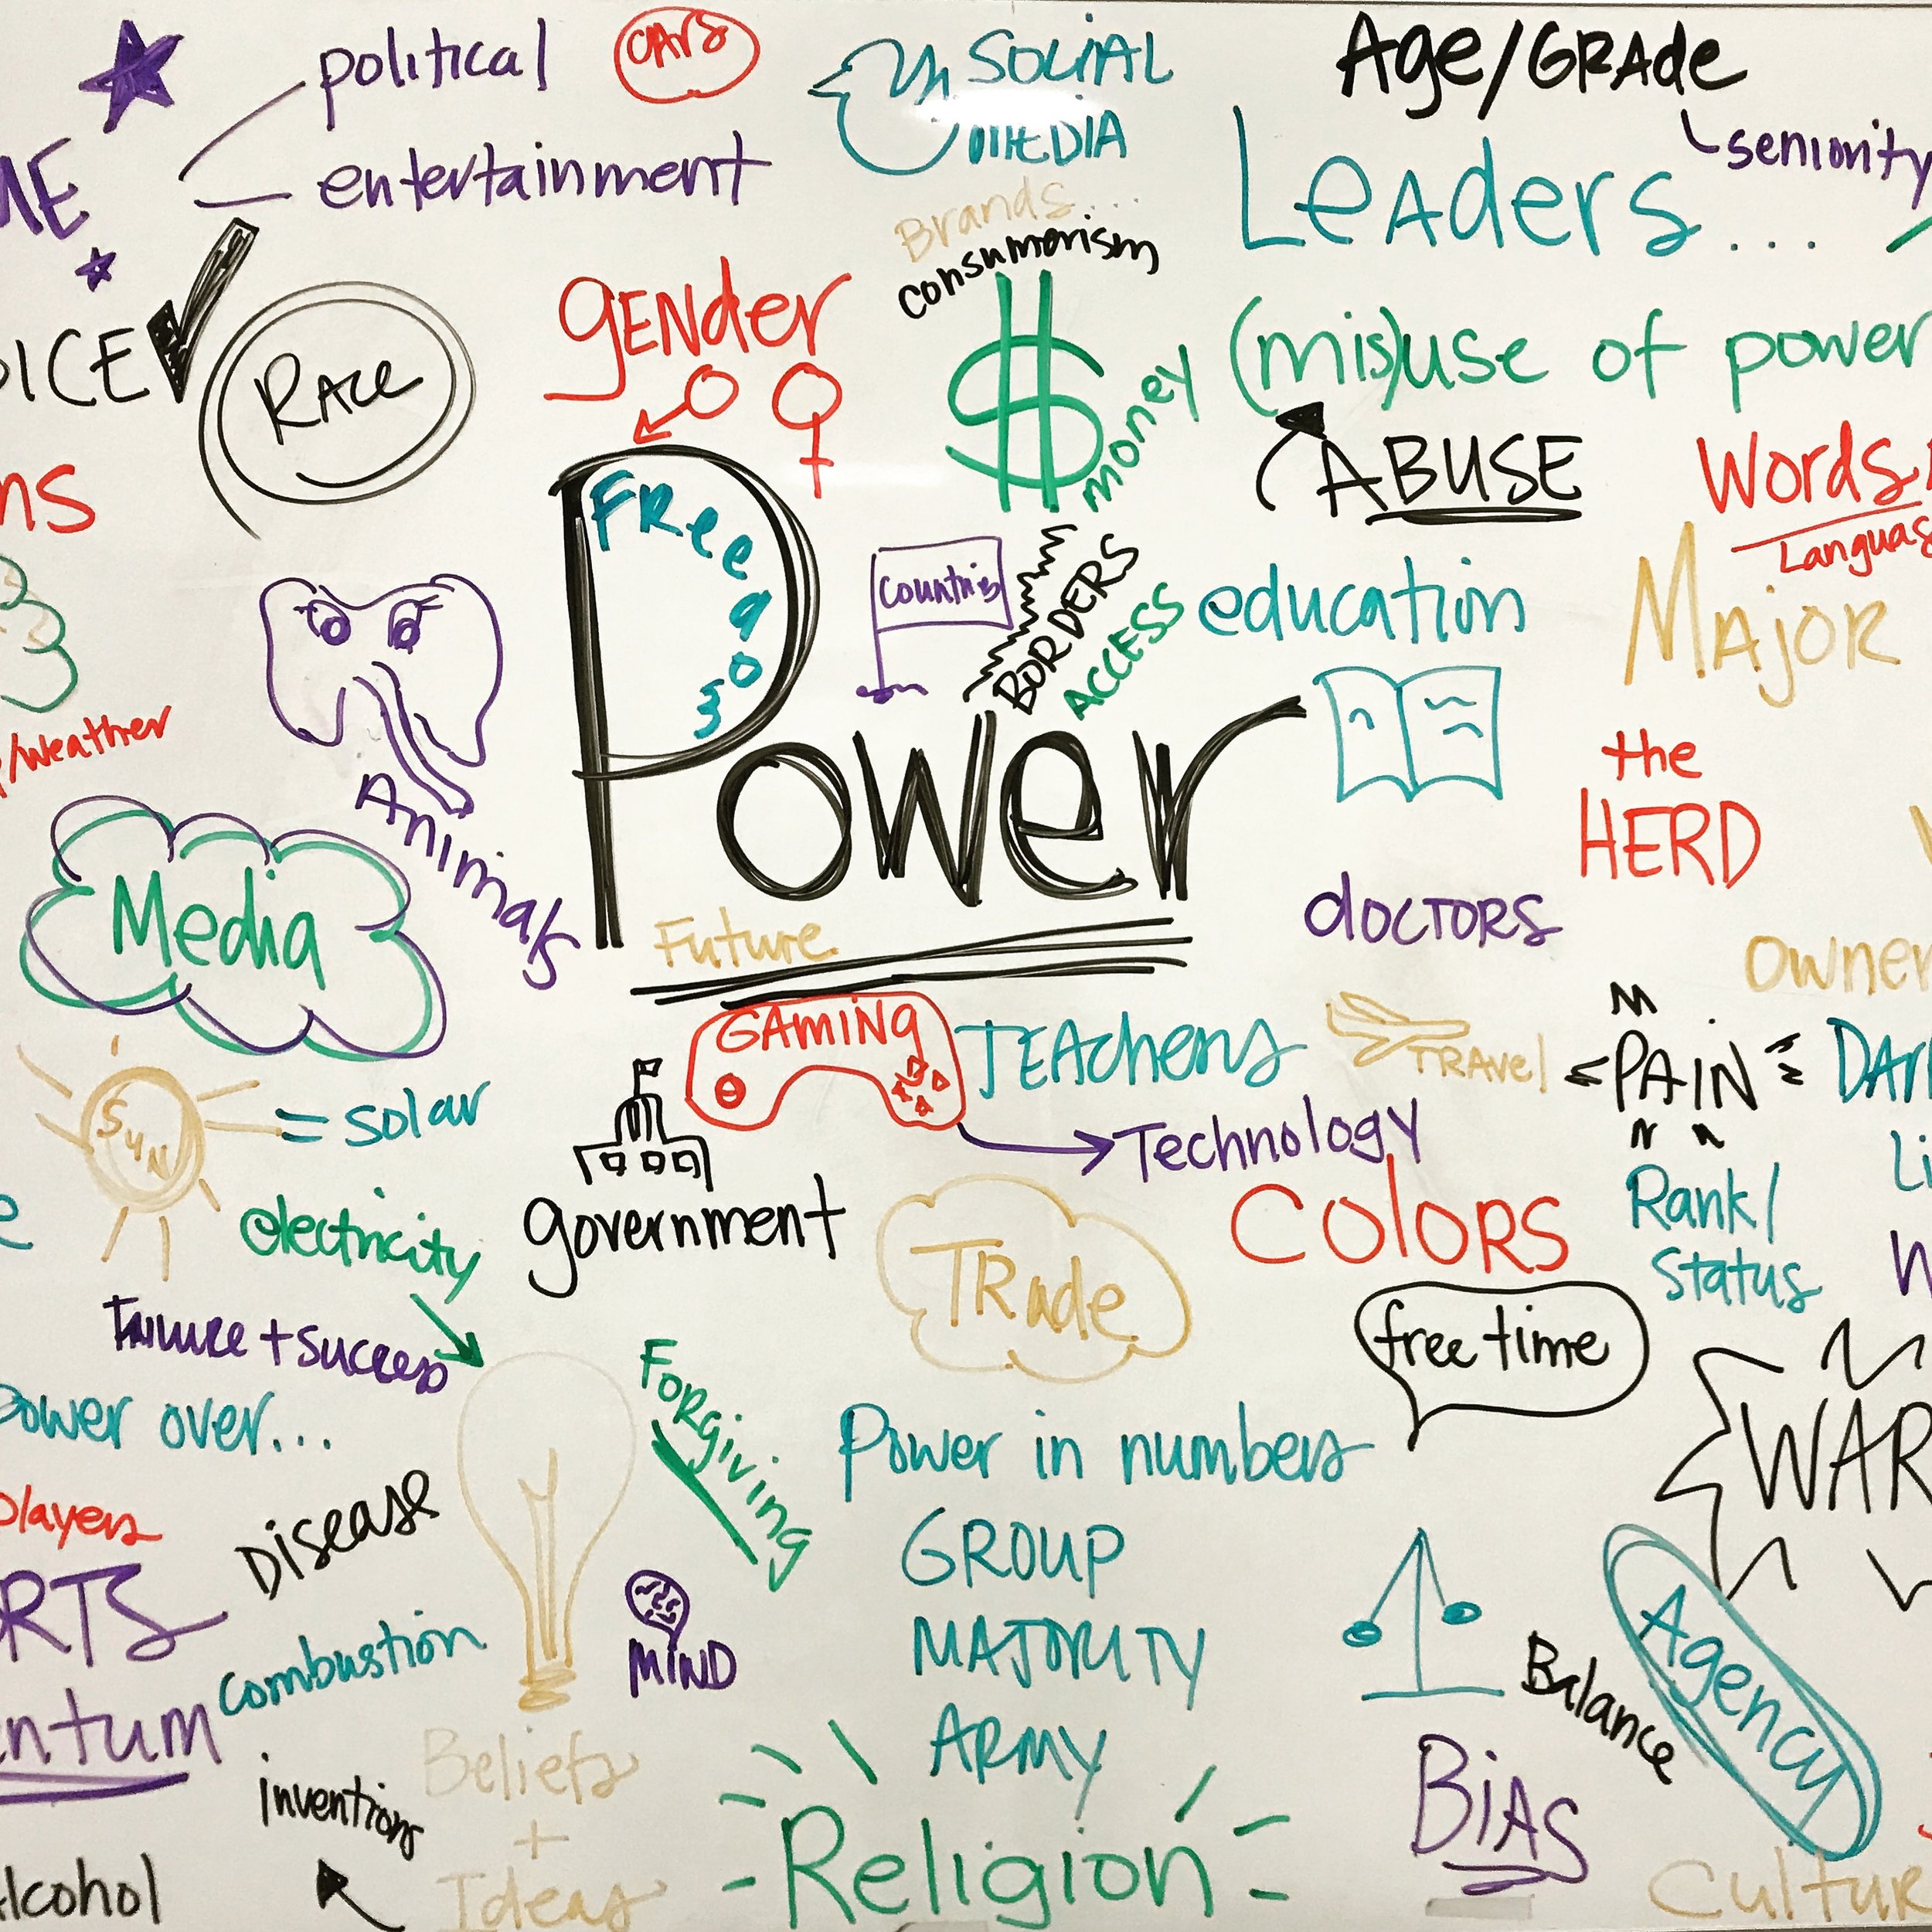 political
cars
SOCIAL
MEDIA
Age/GRAde
seniority
entertainment
ME
Brands....
consumerism
Leaders...
GENder
(mis)use of power
OICE
RACE
money
ABUSE
Words
Language
ns
FReedom
countries
BORDERS
ACCESS
education
MAJOR
/weather
Power
the
HERD
Animals
Media
Future
doctors
owner
GAMING
TEACHers
TRAVEl
PAIN
DAR
SuN
= solar
Technology
government
electricity
Li
Rank/
Status
COlORS
TRade
e
Failure + success
free time
FORgiving
Power over...
Power in numbers
WAR
players
Disease
GROUP
RTS
MIND
MAJORITY
Agency
combustion
Balance
entum
ARMY
Beliefs
+
Ideas
inventions
BiAS
Religion
alcohol
Cultur